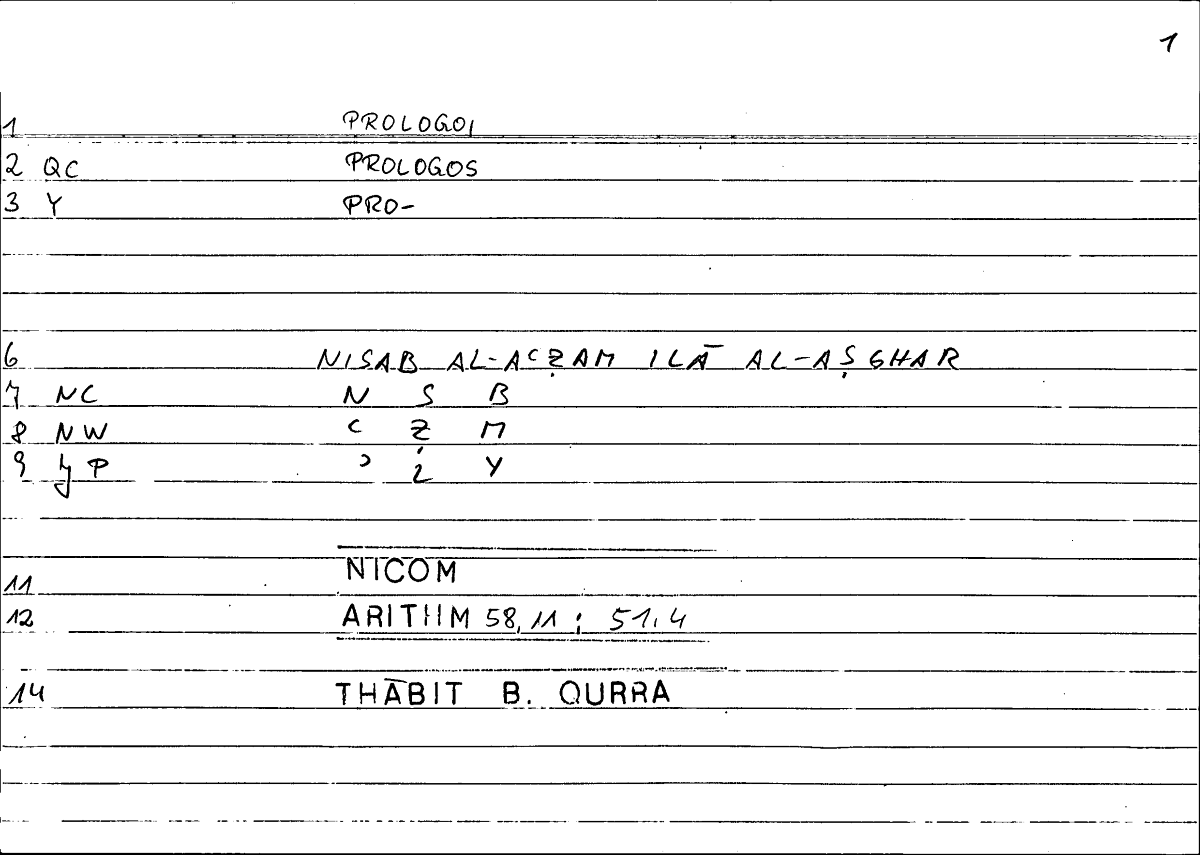 1
1 PROLOGOI
2 QC PROLOGOS
3 Y PRO-
6 NISAB AL-AʿẒAM ILĀ AL-AṢGHAR
7 NC N S B
8 NW ʿ Ẓ M
9 JP ʾ L Y
11 NICOM
12 ARITHM 58,11 ; 51,4
14 THĀBIT B. QURRA